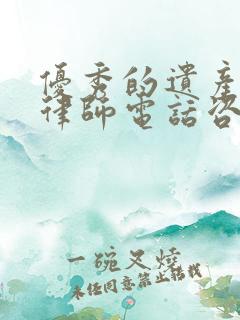 優秀的遺產
律師電話咨
一碗叉燒
未經同意禁止轉載